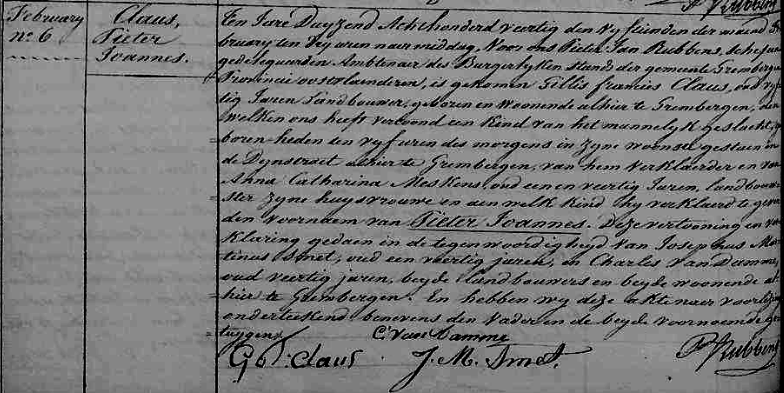 P Rubbens
February
n° 6
Claus,
Pieter
Joannes.
Ten Jare Duyzend Achthonderd veertig den vyfden der maand Fe=
bruary ten dry uren naer middag, Voor ons Pieter Jan Rubbens, Schepen
gedelegueerden Ambtenaer des Burgerlyken stands der gemeente Grembergen
Provincie oostvlaenderen, is gekomen Gillis francis Claus, oud vyf
tig Jaren Landbouwer, geboren en Woonende alhier te Grembergen, den
Welken ons heeft vertoond een Kind van het mannelyk geslacht, ge
boren heden ten vyf uren des morgens in zyne woonste gestaen in
de Dynstroet alhier te Grembergen, van hem Verklaerder en van
Anna Catharina Meskens, oud een en veertig Jaren, landbouw
ster zyne huysvrouwe en aen welk Kind Hy verklaerd te geven
den voornaem van Pieter Joannes. Deze vertooning en ver
klaring gedaen in de tegenwoordigheyd Van Josephus Mar
tinus Smet, oud een veertig jaren, en Charles Van Damme,
oud veertig jaren, beyde landbouwers en beyde woonende al
hier te Grembergen. En hebben wy deze akte naer voorlezing
onderteekend benevens den Vader en de beyde voornoemde ge
tuygen
C Van Damme
G f. Claus J. M. Smet.
P Rubbens